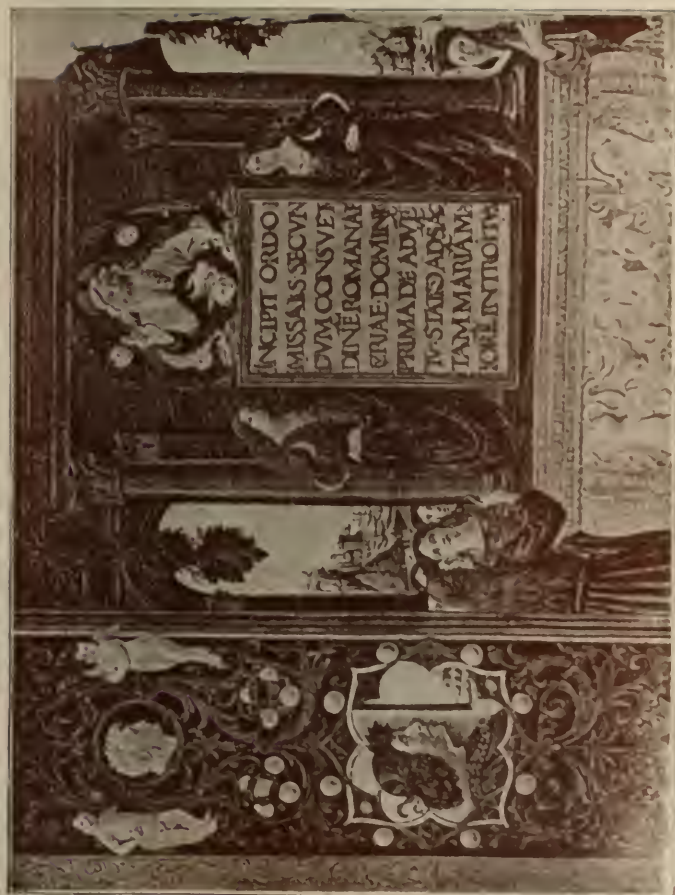 INCIPIT ORDO
MISSALIS SECVN
DVM CONSVET
DINĒ ROMANAE
DOMINI
PRIMA DE ADVĒ
TV·STATIO AD SĀC
TAM MARIAM M
IORĒ INTROITV